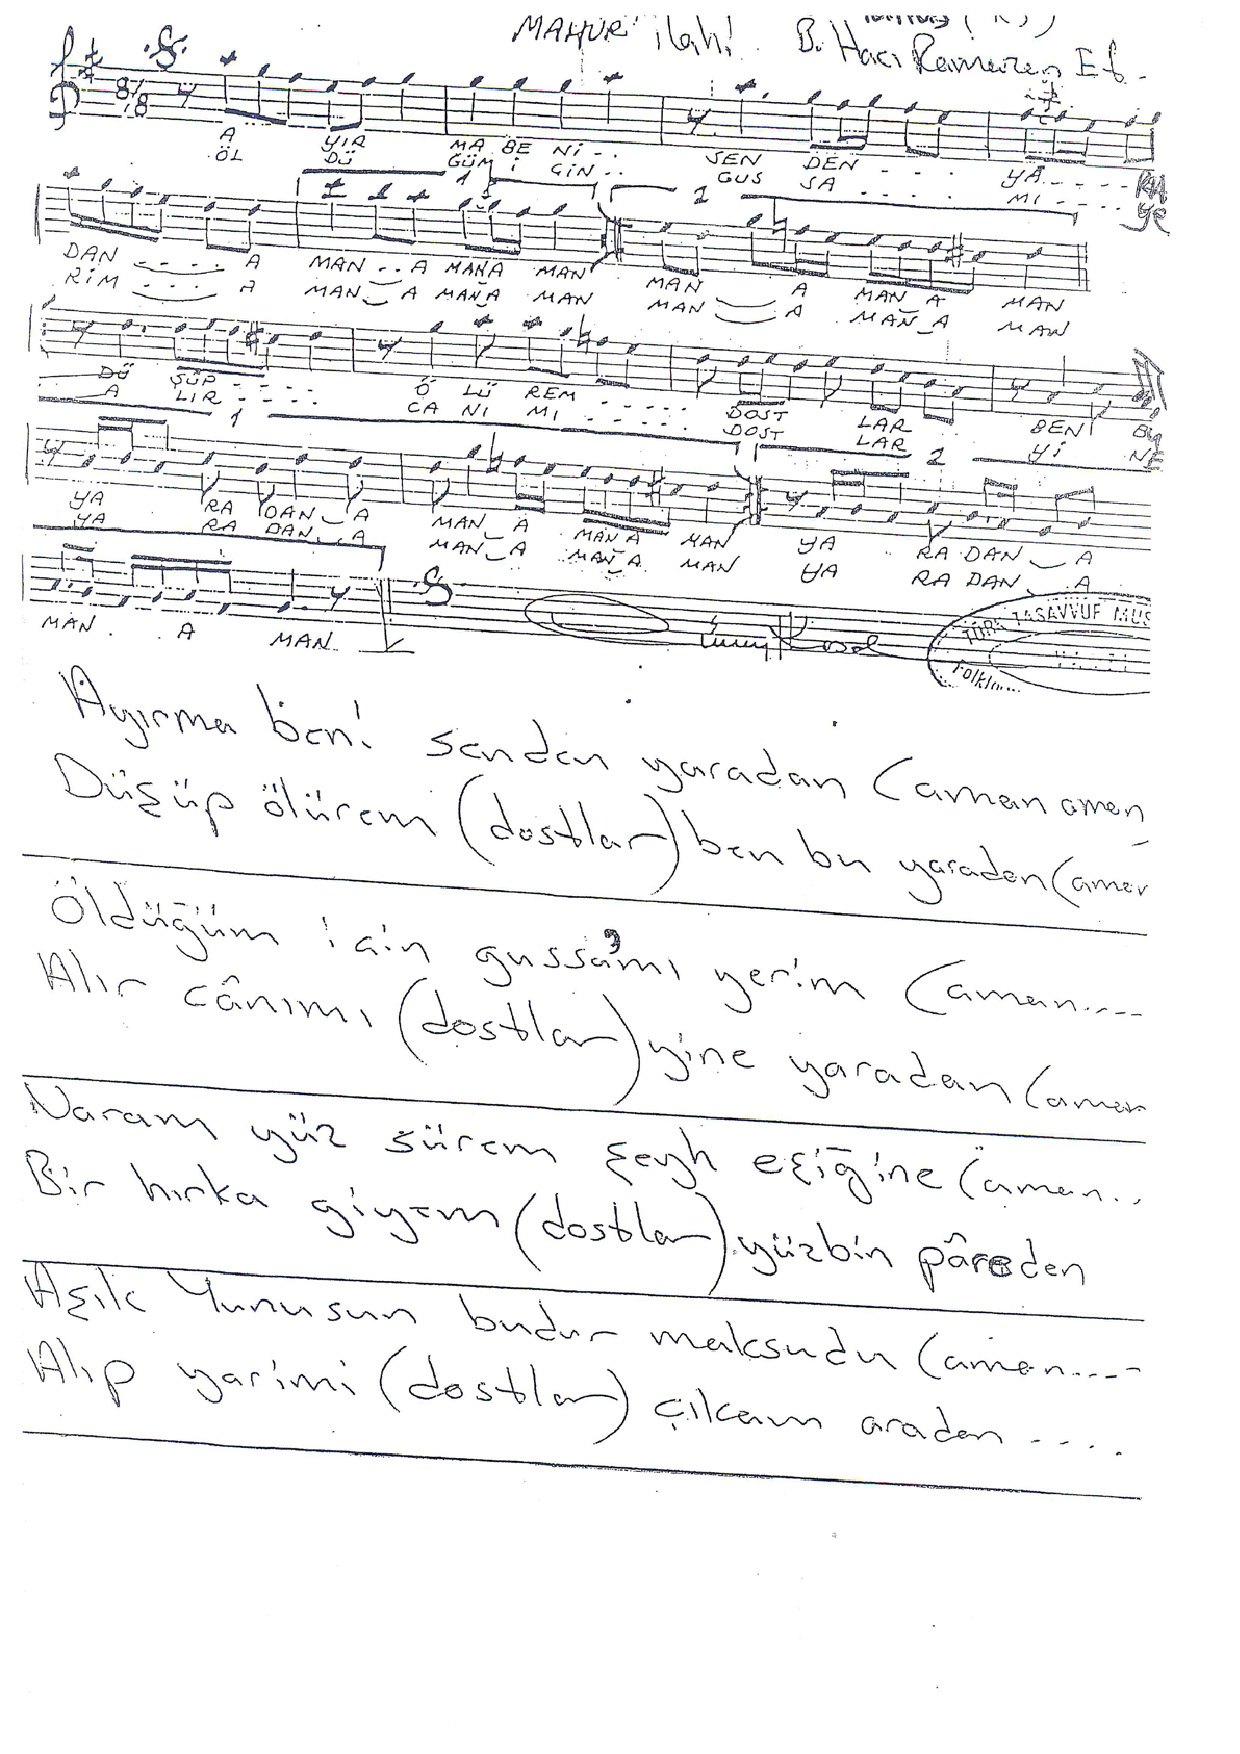 MAHUR ilahi B. Hacı Ramazan Ef.
8/8
A YIR MA BE Nİ SEN DEN YA RA
ÖL DÜ GÜM İ ÇİN GUS SA MI YE
1 2
DAN A MAN A MAN A MAN MAN A MAN A MAN
RİM A MAN A MAN A MAN MAN A MAN A MAN
DÜ ŞÜP Ö LÜ REM DOST LAR BEN BU
A LIR CA NI MI DOST LAR Yİ NE
1 2
YA RA DAN A MAN A MAN A MAN YA RA DAN A
YA RA DAN A MAN A MAN A MAN YA RA DAN A
MAN A MAN
TÜRK TASAVVUF MUS
Folkl
Ayırma beni senden yaradan (aman aman
Düşüp ölürem (dostlar) ben bu yaradan (aman
Öldüğüm için gussamı yerim (aman....
Alır cânımı (dostlar) yine yaradan (aman
Varam yüz sürem şeyh eşiğine (aman..
Bir hırka giyem (dostlar) yüzbin pâreden
Aşık Yunusun budur maksudu (aman....
Alıp yarimi (dostlar) çıkam aradan ....